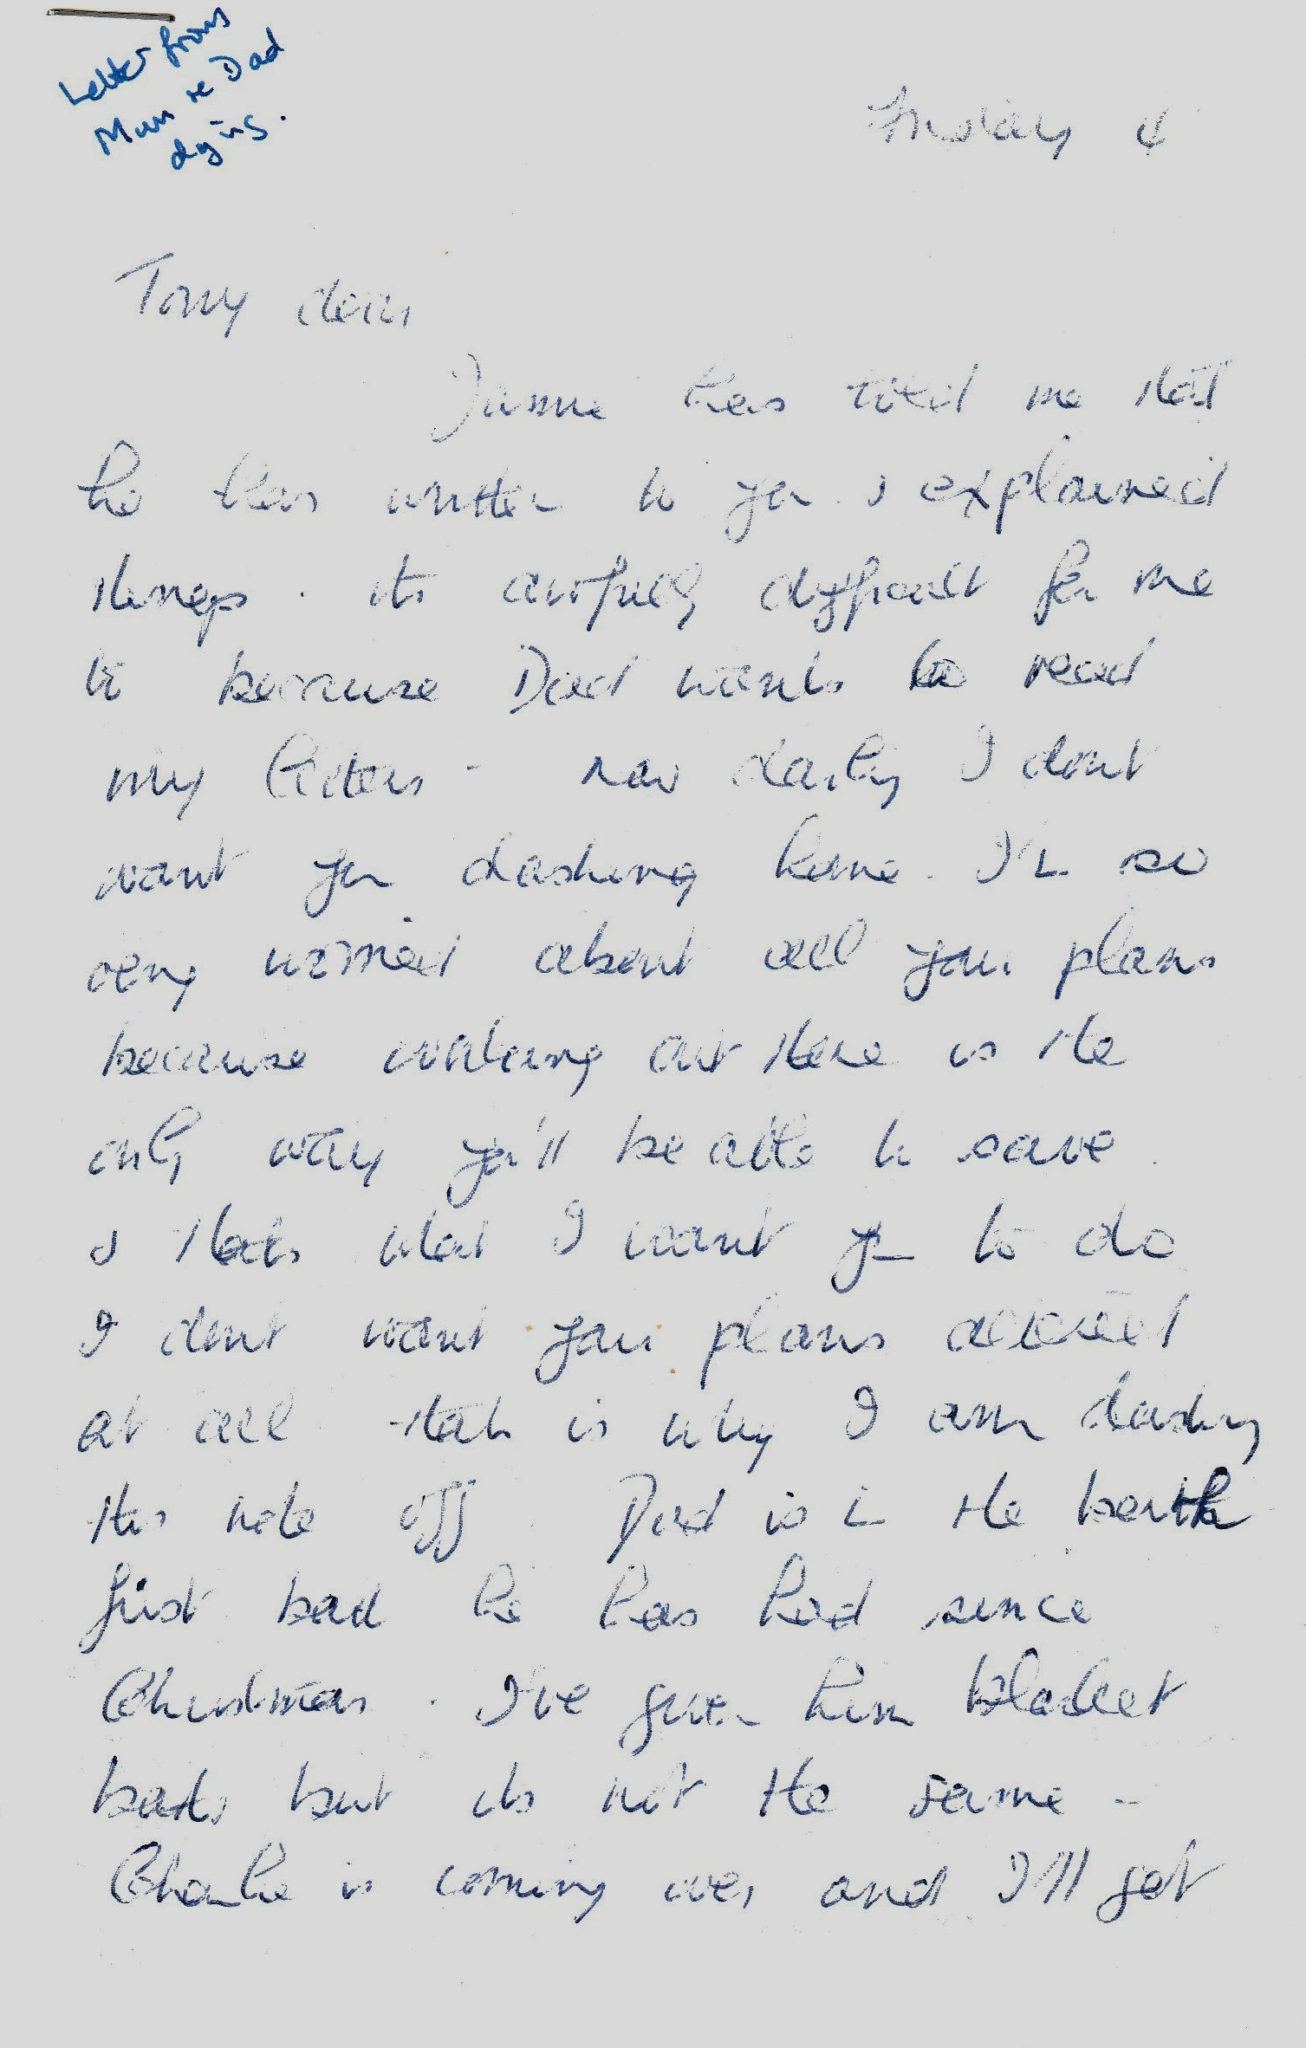 Letter from
Mum re Dad
dying.
Friday 4
Tony dear
Jamie has told me that
he has written to you & explained
things. its awfully difficult for me
to because Dad wants to read
my letters - now darling I dont
want you dashing home. I'm so
very worried about all your plans
because working out there is the
only way you'll be able to save.
& thats what I want you to do
I dont want your plans altered
at all thats is why I am dashing
this note off. Dad is in the bath
first bad he has had since
Christmas. I've given him blanket
baths but its not the same -
Charlie is coming over and I'll get